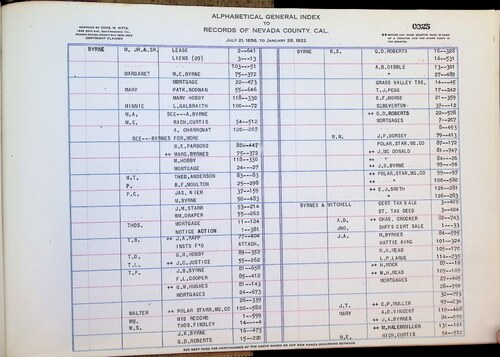 ALPHABETICAL GENERAL INDEX
TO
RECORDS OF NEVADA COUNTY, CAL.
JULY 21, 1856, TO JANUARY 28, 1922
COMPILED BY CHAS. W. KITTS,
COPYRIGHT CLAIMED
0325
BYRNE M, JR.& SR. LEASE 2--641
LIENS (29) 3---13
103---51
MARGARET M.E.BYRNE 75--372
MORTGAGE 22--473
MARY PATK.NOONAN 55--646
MARY HOBBY 118--330
MINNIE L.GALBRAITH 100--72
M.A. SEE---A.BYRNE
M.E. RICH.CURTIS 54--512
A. CHARBONAT 120--267
SEE---BYRNES FOR MORE
H.E.PARSONS 80--447
++ MARG.BYRNES 75--372
M.HOBBY 118--330
MORTGAGE 24---27
M.T. THEO.ANDERSON 83--83
P. B.F.MOULTON 25--298
P.C. JAS.WIER 37--159
M.BYRNE 50--483
J.M.STARR 23--214
WM.DRAPER 55--262
THOS. MORTGAGE 11--124
NOTICE ACTION 1--381
T.B. ++ J.A.RAPP 77--404
INSTS F'D ATTACH.
T.D. G.H.HOBBY 89--352
T.L. ++ J.C.JUSTICE 55--262
T.P. J.B.BYRNE 81--658
F.L.COOPER 85--412
++ G.W.HUGHES 81--143
MORTGAGES 24--673
28--339
WALTER ++ POLAR STAR.MG.CO 100--580
WM. MIS RECORD 1--599
W.S. THOS.FINDLEY 14----4
J.K.BYRNE 16--473
G.D.ROBERTS 15--220
BYRNE W.S. G.D.ROBERTS 16--328
" 16--531
A.B.DIBBLE 13--301
" 27--489
GRASS VALLEY TRS. 14--45
T.J.PEGG 17--242
E.F.MORSE 21--359
SUBEVERTON 37--12
++ G.D.ROBERTS 22--578
MORTGAGES 7--267
8--493
W.B. J.P.DORSEY 79--413
POLAR.STAR.MG.CO 87--172
++ J.MC DONALD 81--747
++ " 84--26
++ J.D.BYRNE 95--96
++ POLAR.STAR.MG.CO 99--97
++ " 100--580
++ E.J.SMITH 126--281
++ " 126--283
BYRNES & MITCHELL CERT TAX SALE 3--409
ST. TAX DEED 3--404
A.D. ++ CHAS. CROCKER 82--743
JNO. SHFFS CERT SALE 1--33
J.A. M.BYRNES 84--595
HATTIE KING 101--324
W.H.MEAD 105--170
L.P.LARUE 114--235
++ H.HOCK 87--18
++ W.H.MEAD 105--169
MORTGAGES 27--446
28--590
32--293
J.T. ++ E.P.MULLER 97--230
MARY A.D.VINCENT 119--468
++ J.A.BYRNES 84--595
++ M.HAERMULLER 131--161
M.E. RICH.CURTIS 54--512